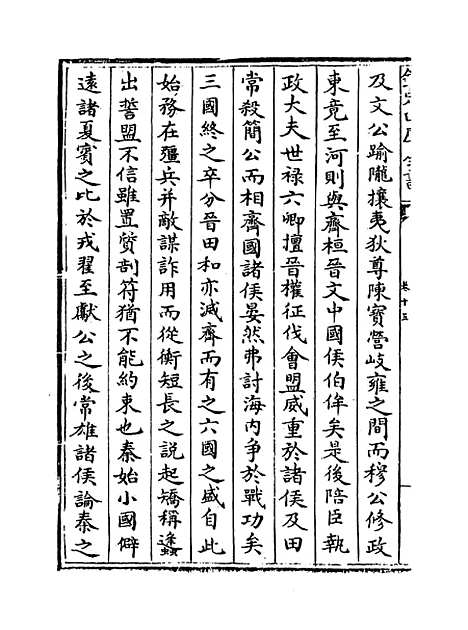 及文公踰隴攘夷狄尊陳寳營岐雍之間而穆公修政
東竟至河則與齊桓晉文中國侯伯侔矣是後陪臣執
政大夫世禄六卿擅晉權征伐會盟威重於諸侯及田
常殺簡公而相齊國諸侯晏然弗討海内争於戰功矣
三國終之卒分晉田和亦滅齊而有之六國之盛自此
始務在彊兵并敵謀詐用而從衡短長之説起矯稱蠭
出誓盟不信雖置質剖符猶不能約束也秦始小國僻
逺諸夏賓之比於戎翟至獻公之後常雄諸侯論秦之
卷十五